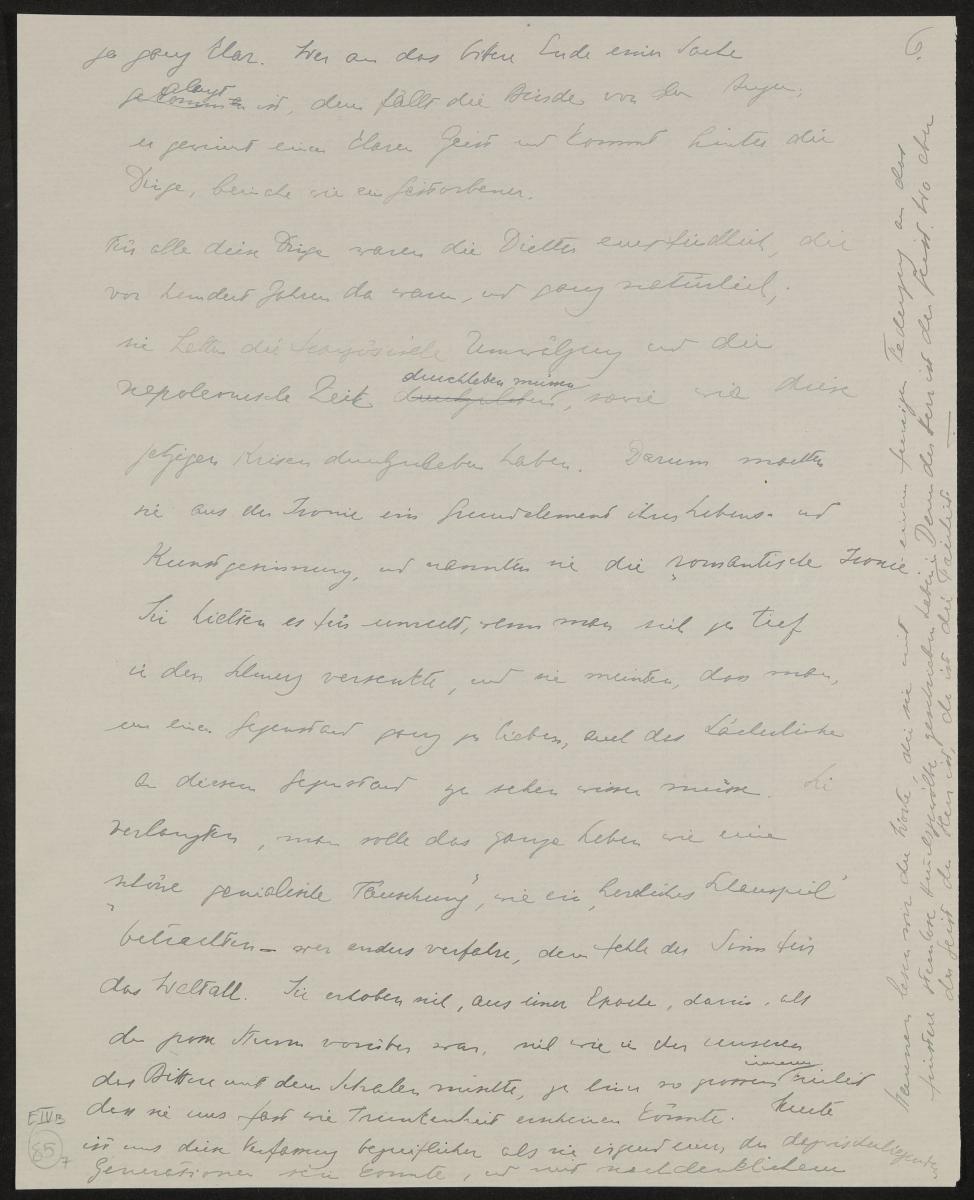 6.
ja ganz klar. Wer an das bittere Ende einer Sache
gelangt ist, dem fällt die Binde von den Augen;
er gewinnt einen klaren Geist und kommt hinter die
Dinge, beinahe wie ein Gestorbener.
Für alle diese Dinge waren die Dichter empfindlich, die
vor hundert Jahren da waren, und ganz natürlich;
sie hatten die französische Umwälzung und die
napoleonische Zeit durchleben müssen, sowie wir diese
jetzigen Krisen durchzuleben haben. Darum machten
sie aus der Ironie ein Grundelement ihrer Lebens- und
Kunstgesinnung, und nannten sie die „romantische Ironie
Sie hielten es für unrecht, wenn man sich zu tief
in den Schmerz versenkte, und sie meinten, dass man,
um einen Gegenstand ganz zu lieben, auch das Lächerliche
an diesem Gegenstand zu sehen wissen müsse. Sie
verlangten, man solle das ganze Leben wie eine
„schöne genialische Täuschung", wie ein „herrliches Schauspiel"
betrachten – wer anders verfahre, dem fehle der Sinn für
das Weltall. Sie erhoben sich, aus einer Epoche, darin, als
der grosse Sturm vorüber war, sich wie in der unseren
das Bittere mit dem Schalen mischte, zu einer so grossen inneren Freiheit
dass sie uns fast wie Trunkenheit erscheinen könnte. Heute
ist uns diese Verfassung begreiflicher als sie irgend einer der dazwischenliegenden
Generationen sein konnte, und mit nachdenklichem
Staunen lesen wir die Worte, die sie mit einem feurigen Federzug an das
finstere sternlose Himmelsgewölbe geschrieben haben: Denn der Herr ist der Geist. Wo aber
der Geist des Herrn ist, da ist die Freiheit.
E IV B
85
7